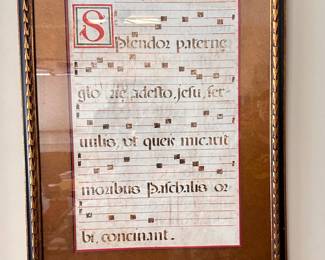 Splendor paterne
glo riæ adesto, Jesu, ser-
vulis, ut queis micavit
moribus Paschalis or
bi, concinant.